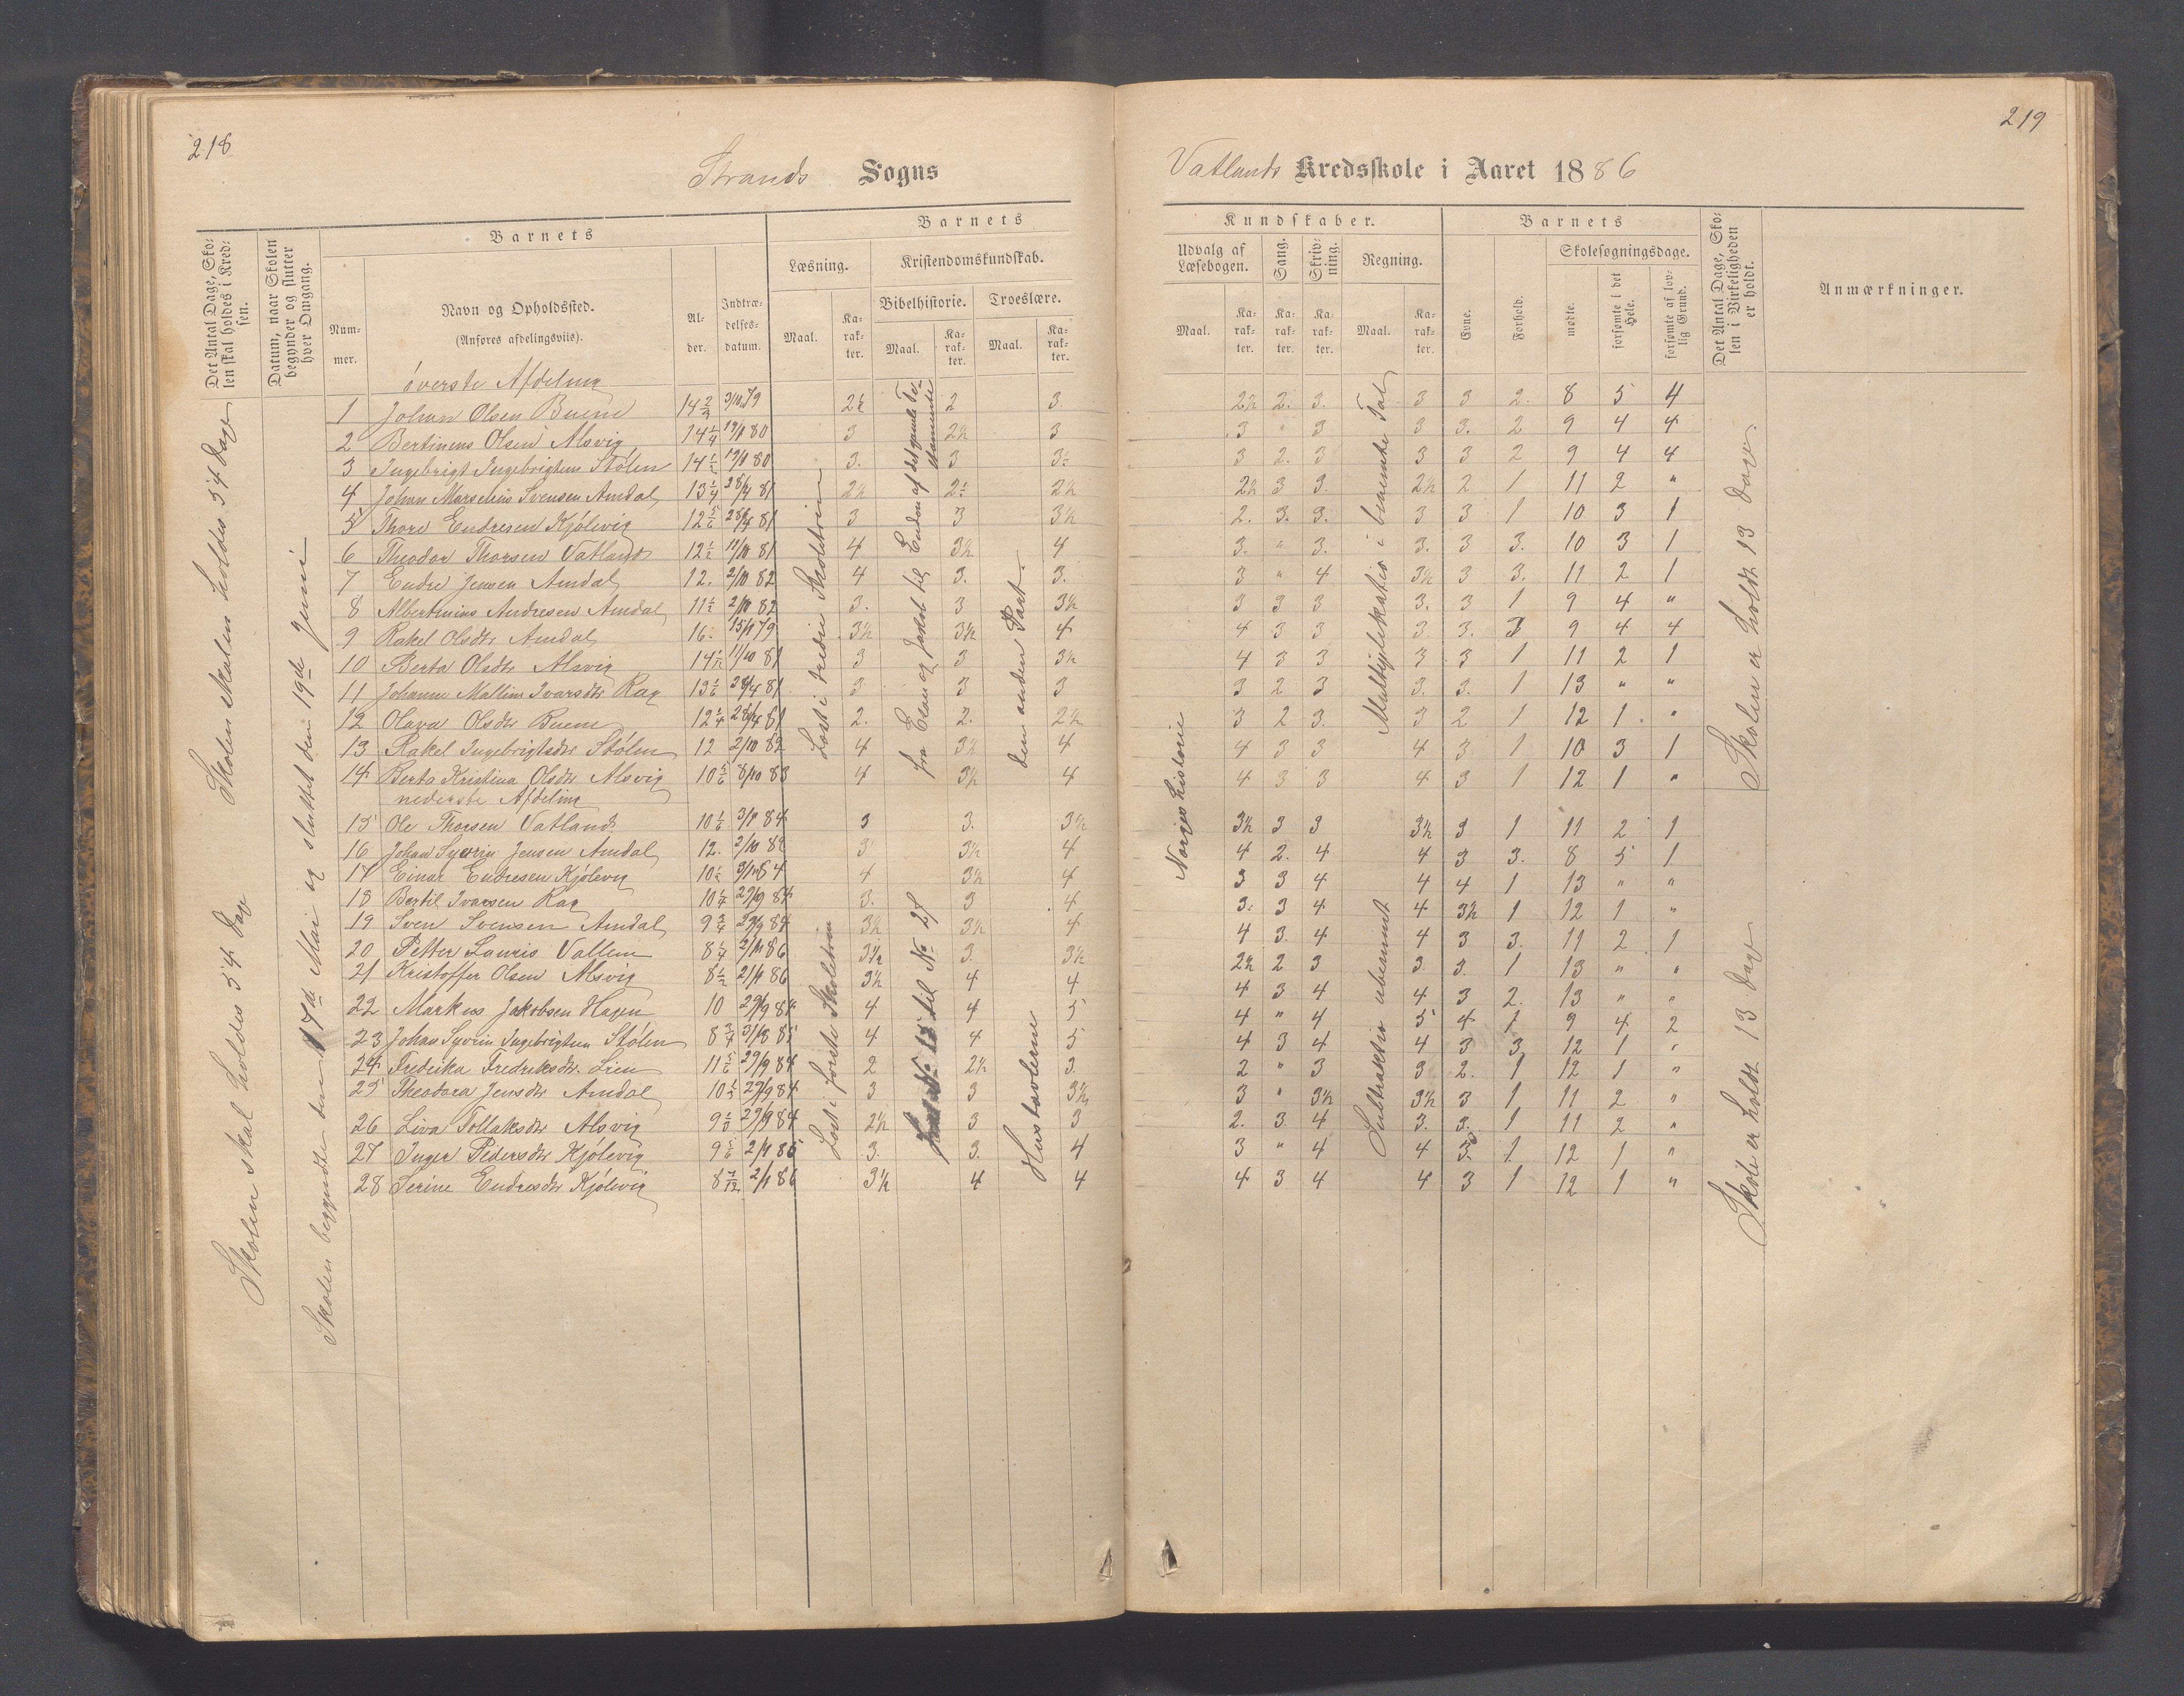 218
Strands Sogns
Det Antal Dage, Sko-
len skal holdes i Kred-
sen.
Datum, naar Skolen
begynder og slutter
hver Omgang.
Barnets
Num-
mer.
Navn og Opholdssted.
(Anføres afdelingsviis).
Al-
der.
Indtræ-
delses-
datum.
Barnets
Læsning.
Kristendomskundskab.
Bibelhistorie.
Troeslære.
Maal.
Ka-
rak-
ter.
Maal.
Ka-
rak-
ter.
Maal.
Ka-
rak-
ter.
Skolen skal holdes 54 Dage
Skolen skal holdes 54 Dage
Skolen begyndte den 17de Mai og sluttet den 19de Juni
øverste Afdeling
1 Johan Olsen Buene 14 2/3 3/10 79 2½ 2 3.
2 Bertinius Olsen Alsvig 14 1/4 19/1 80 3 2½ 3
3 Ingebrigt Ingebrigtsen Stølen 14 1/2 19/1 80 3. 3 3½
4 Johan Marselius Svensen Amdal 13 1/4 28/4 81 2½ 2½ 2½
5 Thore Endresen Kjølevig 12 5/6 28/4 81 3 3 3½
6 Theodor Thorsen Vatland 12 1/2 11/10 81 4 3½ 4
7 Endre Jensen Amdal 12. 2/10 82 4 3. 3.
8 Albertinius Andresen Amdal 11 1/2 2/10 82 3. 3 3½
9 Rakel Olsdtr Amdal 16. 15/1 79 3½ 3½ 4
10 Berta Olsdtr Alsvig 14 1/12 11/10 81 3 3 3½
11 Johanne Malline Ivarsdtr Rag 13 1/6 28/4 81 3 3 3
12 Olava Olsdtr Buene 12 1/4 28/4 81 2. 2. 2½
13 Rakel Ingebrigtsdtr Stølen 12 2/10 82 4 3½ 4
14 Berta Kristina Olsdtr Alsvig 10 5/6 8/10 83 4 3½ 4
nederste Afdeling
15 Ole Thorsen Vatland 10 1/6 3/1 84 3 3. 3½
16 Johan Syvrin Jensen Amdal 12. 2/10 82 3 3½ 4
17 Einar Endresen Kjølevig 10 1/2 3/1 84 4 3½ 4
18 Bertil Ivarsen Rag 10 1/4 29/9 84 3. 3 4
19 Sven Svensen Amdal 9 3/4 29/9 84 3½ 3½ 4
20 Petter Lauris Vallem 8 1/4 2/11 86 3½ 3. 3½
21 Kristoffer Olsen Alsvig 8 1/2 21/1 86 3½ 4 4
22 Markus Jakobsen Hagen 10 29/9 84 4 4 5
23 Johan Syvrin Ingebrigtsen Stølen 8 3/4 31/8 85 4 4 5
24 Fredrika Fredriksdtr. Lien 11 5/6 29/9 84 2 2½ 3.
25 Theodora Jensdtr Amdal 10 1/2 29/9 84 3 3 3½
26 Liva Tollaksdtr Alsvig 9 29/9 84 2½ 3 3
27 Inger Pedersdtr Kjølevig 9 5/6 2/1 86 3. 3. 4
28 Serine Endresdtr Kjølevig 8 7/12 2/1 86 3½ 4 4
Læst i tredie Skoletrin
fra Esau og Jakob til Enden af det gamle Te-
stamente
den anden Part.
Læst i første Skoletrin
til No 28
Hustavlerne
219
Vatlands Kredsskole i Aaret 1886
Kundskaber.
Udvalg af
Læsebogen.
Sang.
Skriv-
ning.
Regning.
Maal.
Ka-
rak-
ter.
Ka-
rak-
ter.
Ka-
rak-
ter.
Maal.
Ka-
rak-
ter.
Barnets
Evne.
Forhold.
Skolesøgningsdage.
mødte.
forsømte i det
Hele.
forsømte af lov-
lig Grund.
Det Antal Dage, Sko-
len i Virkeligheden
er holdt.
Anmærkninger.
2½ 2. 3. 3 3 2. 8 5 4
3 " 3 3 3. 2 9 4 4
3 2. 3 3 3 2 9 4 4
2½ 3 3. 2½ 2 1 11 2 "
2. 3. 3. 3 3 1 10 3 1
3. " 3. 3. 3 3. 10 3 1
3 " 4 3½ 3 3. 11 2 1
3 3 3 3. 3 1 9 4 "
4 3 3 3 3. 3 9 4 4
4 3 3 3 3 1 11 2 1
3 2 3 3. 3. 1 13 " "
3 2 3. 3 2 1 12 1. "
4 3 3 4 3 1 10 3 1
4 3 3 4 3 1 12 1 "
3½ 3 3 3½ 3 1 11 2 1
4 2. 4 4 3 3. 8 5 1
3 3 4 4 4 1 13 " "
3. 3 4 4 3½ 1 12 1 "
4 3. 4 4 3 3. 11 2 1
2½ 2 3 3 3. 1 13 " "
4 3 4 4 3 2. 13 " "
4 " 4 5 4 1 9 4 2
4 3 4 4 3 3 12 1 "
2 " 3 3 2. 1 12 1 "
3 " 3½ 3½ 3 1 11 2 "
2. 3 4 3. 3. 1 11 2 "
3 " 4 4 3. 1 12 1 "
4 3 4 4 3 1 12 1 "
Norges historie
Multiplikation i benævnte Tal
Subtraktion ubenævnt
Skolen er holdt 13 Dage
Skole er holdt 13 Dage